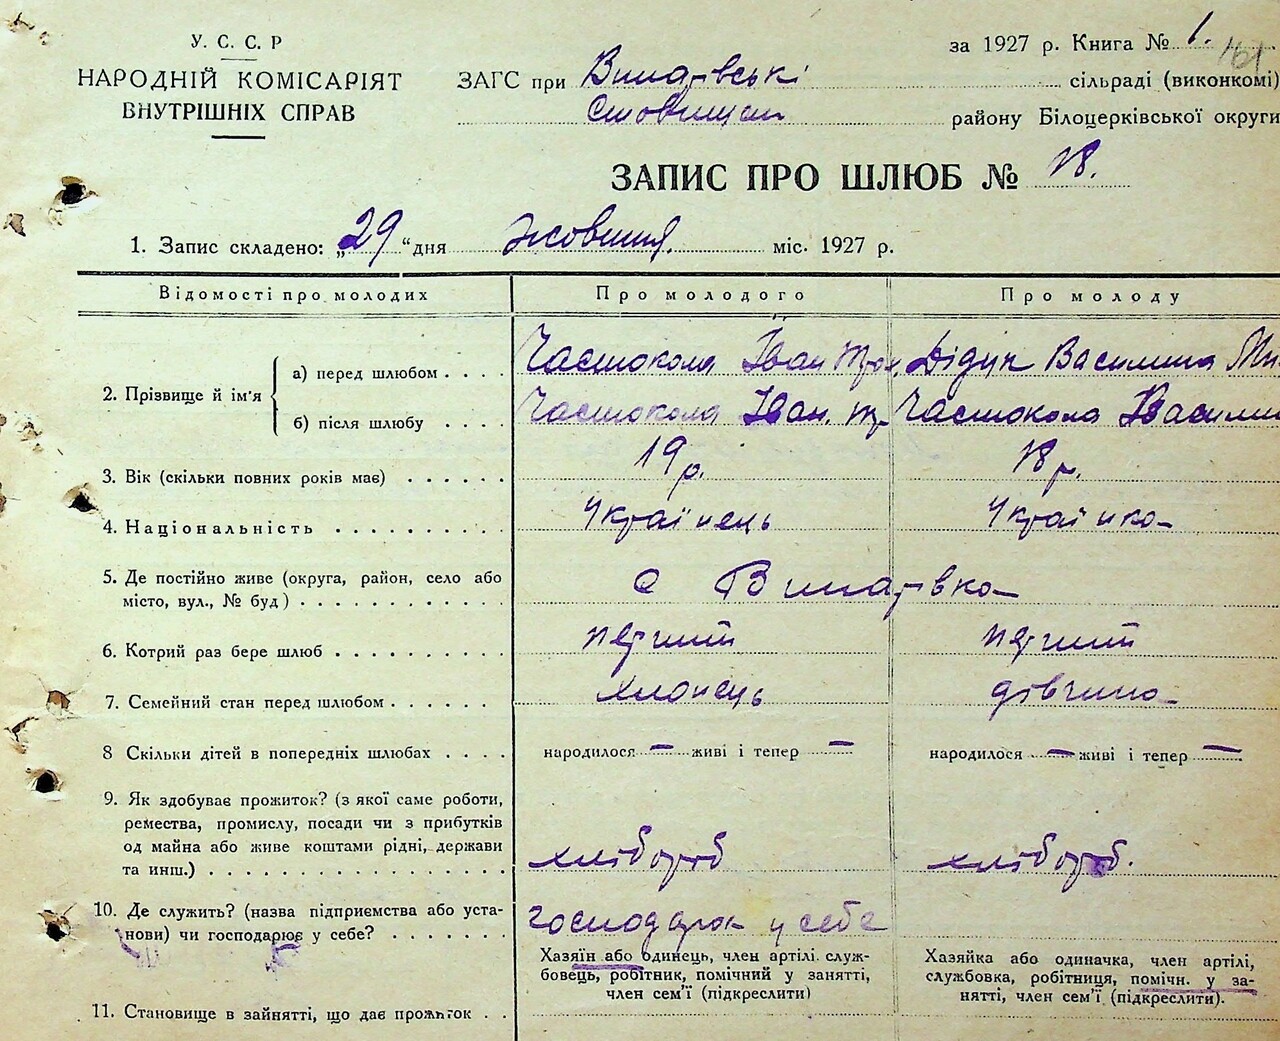 У. С. С. Р
НАРОДНІЙ КОМІСАРІЯТ
ВНУТРІШНІХ СПРАВ
за 1927 р. Книга № 1. 161
ЗАГС при сільраді (виконкомі)
району Білоцерківської округи
ЗАПИС ПРО ШЛЮБ № 18.
1. Запис складено: „29 “ дня жовтня. міс. 1927 р.
Відомості про молодих Про молодого Про молоду
2. Прізвище й ім'я
а) перед шлюбом . . . . Частокола Іван Троф. Дідук Василина Ми
б) після шлюбу . . . . Частокола Іван. Тр Частокола Васили
3. Вік (скільки повних років має) . . . . . . 19 р. 18 р.
4. Національність . . . . . . . . . Українець Українка
5. Де постійно живе (округа, район, село або
місто, вул., № буд) . . . . . . . . . . . с
6. Котрий раз бере шлюб . . . . . . . . . перший перший
7. Семейний стан перед шлюбом . . . . . . хлопець дівчина
8 Скільки дітей в попередніх шлюбах . . . . народилося — живі і тепер — народилося — живі і тепер —
9. Як здобуває прожиток? (з якої саме роботи,
ремества, промислу, посади чи з прибутків
од майна або живе коштами рідні, держави
та инш.) . . . . . . . . . . . . . . . . хлібороб хлібороб.
10. Де служить? (назва підприємства або уста-
нови) чи господарює у себе? . . . . . . . господарює у себе
Хазяїн або одинець, член артілі. служ-
бовець, робітник, помічний у занятті,
член сем'ї (підкреслити)
Хазяйка або одиначка, член артілі,
службовка, робітниця, помічн. у за-
нятті, член сем'ї (підкреслити).
11. Становище в зайнятті, що дає прожиток . .